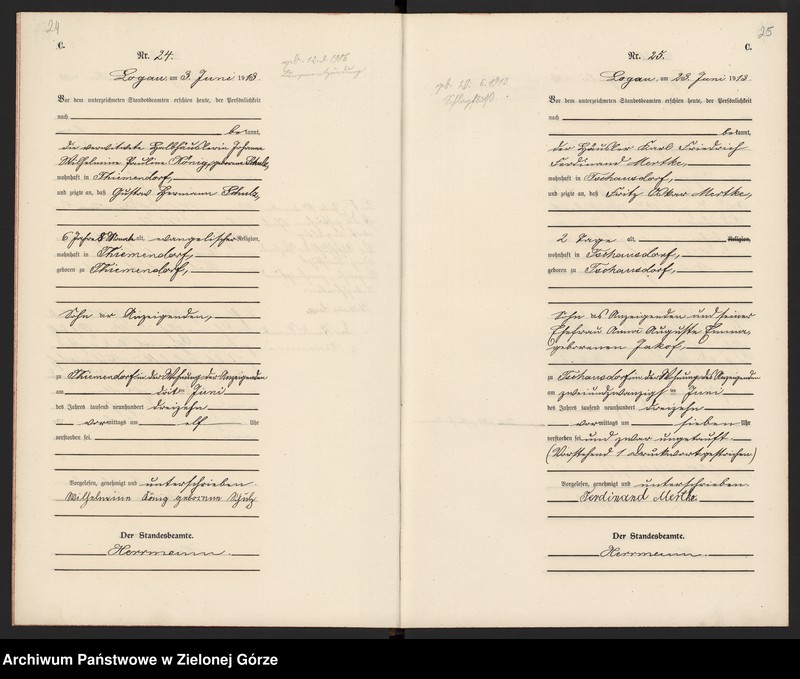 24
C.
Nr. 24.
Logau, am 3. Juni 1913.
Vor dem unterzeichneten Standesbeamten erschien heute, der Persönlichkeit
nach
bekannt,
die verwitwete Halbhäuslerin Johanna
Wilhelmine Pauline König, geborene Schulz,
wohnhaft in Thiemendorf,
und zeigte an, daß Gustav Hermann Schulz,
6 Jahre 8 Monate alt, evangelischer Religion,
wohnhaft in Thiemendorf,
geboren zu Thiemendorf,
Sohn der Anzeigenden,
zu Thiemendorf in der Wohnung der Anzeigenden
am dritten Juni
des Jahres tausend neunhundert dreizehn
vormittags um elf Uhr
verstorben sei.
Vorgelesen, genehmigt und unterschrieben.
Wilhelmine König geborene Schulz
Der Standesbeamte.
Herrmann.
25
C.
Nr. 25.
Logau, am 23. Juni 1913.
Vor dem unterzeichneten Standesbeamten erschien heute, der Persönlichkeit
nach
bekannt,
der Häusler Karl Friedrich
Ferdinand Mertke,
wohnhaft in Tschausdorf,
und zeigte an, daß Fritz Oskar Mertke,
2 Tage alt, Religion,
wohnhaft in Tschausdorf,
geboren zu Tschausdorf,
Sohn des Anzeigenden und seiner
Ehefrau Anna Auguste Emma,
geborenen Jakof,
zu Tschausdorf in der Wohnung des Anzeigenden
am zweiundzwanzigsten Juni
des Jahres tausend neunhundert dreizehn
vormittags um sieben Uhr
verstorben sei und zwar ungetauft.
(Vorstehend 1 Druckwort gestrichen)
Vorgelesen, genehmigt und unterschrieben.
Ferdinand Mertke.
Der Standesbeamte.
Herrmann.
Archiwum Państwowe w Zielonej Górze